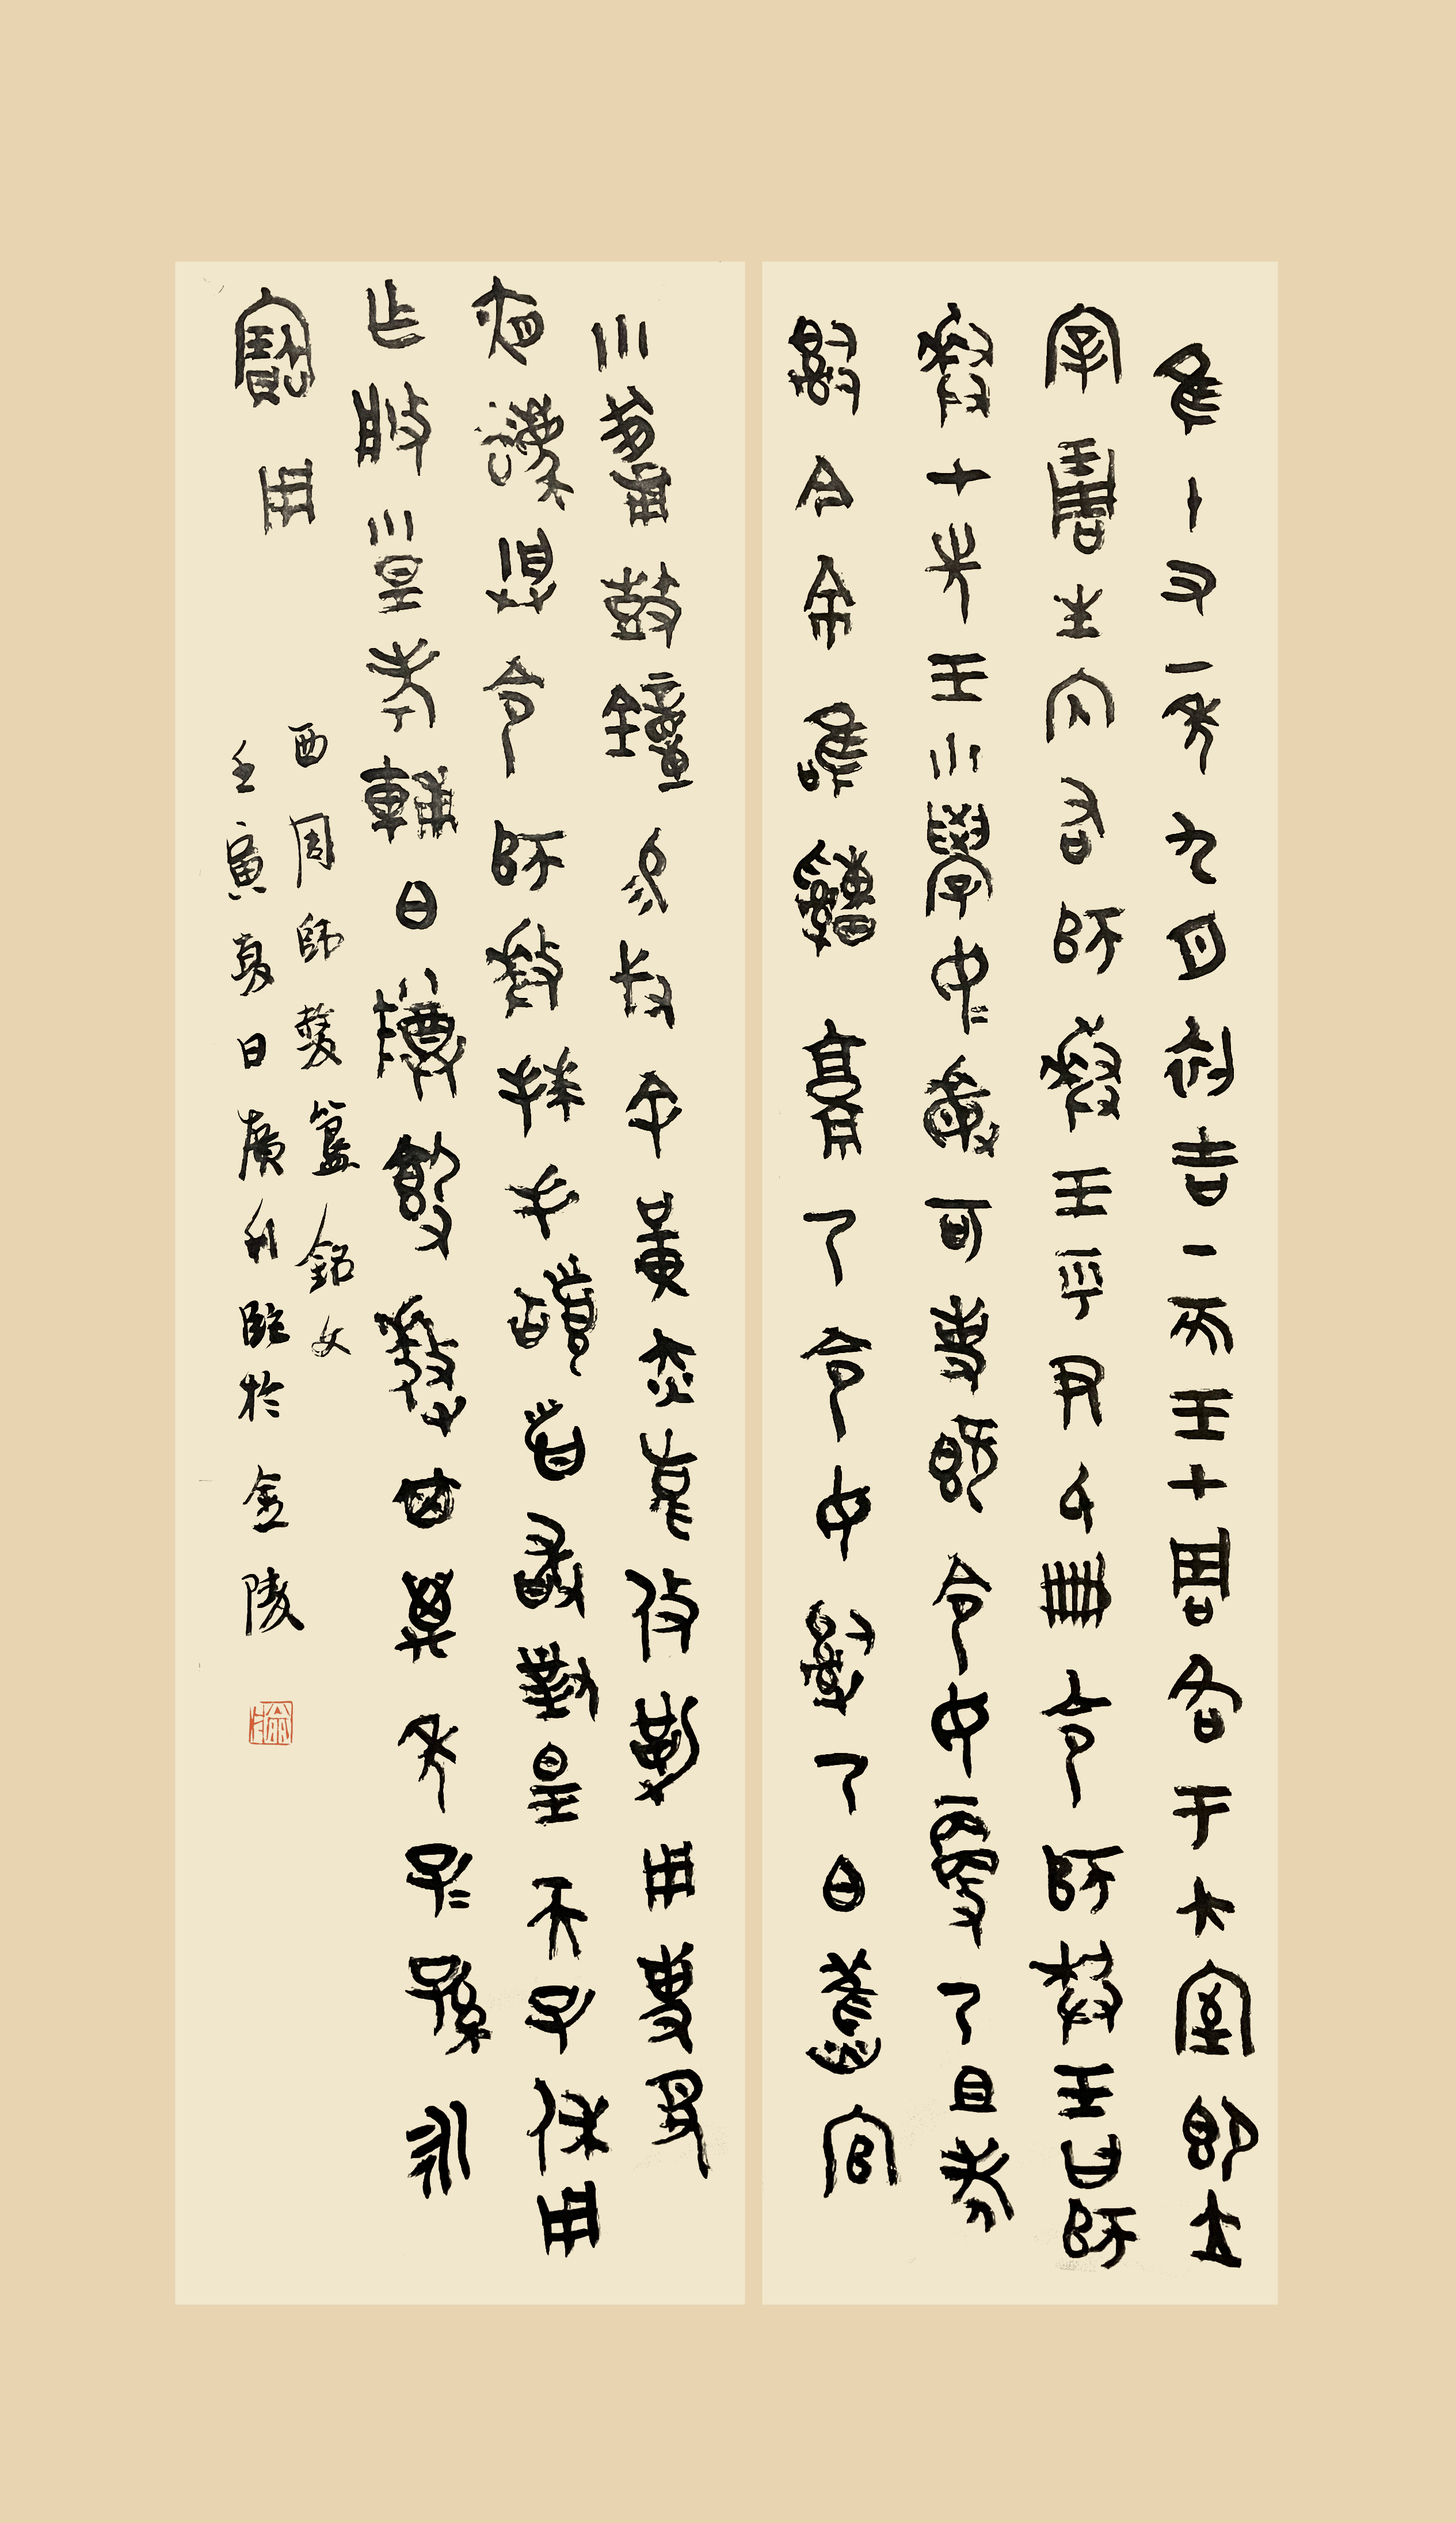 隹十又一年九月初吉丁亥王才周各于大室即立
宰琱生內右師𠭰王乎尹氏冊令師𠭰王曰師
𠭰才先王小學女敏可事既令女更乃且考
𤔲今余唯𤕌𩫨乃令女𤔲乃且舊官
小輔鼓鐘易叔市黃赤舄攸勒用事夙
夜灋朕令師𠭰拜手𩒨首敢對皇天子休用
乍朕皇考輔白尊簋𠭰其萬年子孫永
寶用
西周師𠭰簋銘文
壬寅夏日廣利臨於金陵